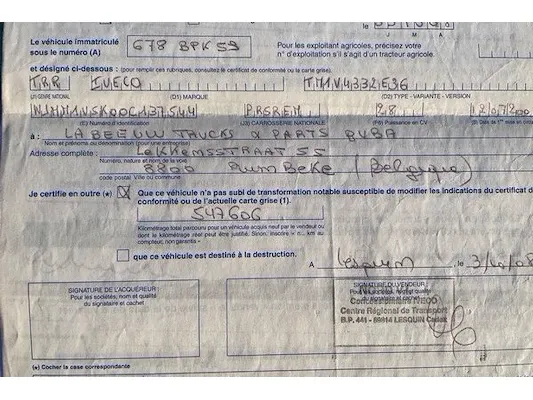 Le véhicule immatriculé
sous le numéro (A) 678 BPK 59 Pour les exploitant agricoles, précisez votre
n° d'exploitation s'il s'agit d'un tracteur agricole.
et désigné ci-dessous : (pour remplir ces rubriques, consultez le certificat de conformité ou la carte grise).
TRR IVECO
(J1) GENRE NATIONAL (D1) MARQUE (D2) TYPE - VARIANTE - VERSION
PRSREM 28
(E) Numéro d'identification (J3) CARROSSERIE NATIONALE (P6) Puissance en CV
à : LABEEUW TRUCKS & PARTS BVBA
Nom et prénoms ou dénomination (pour une entreprise)
Adresse complète : LEKKEMSSTRAAT 55
Numéro, nature et nom de la voie
8800 RUMBEKE (Belgique)
code postal Ville ou commune
Je certifie en outre (*) Que ce véhicule n'a pas subi de transformation notable susceptible de modifier les indications du certificat de
conformité ou de l'actuelle carte grise (1).
547606
Kilométrage total parcouru pour un véhicule acquis neuf par le vendeur ou
dont le kilométrage réel peut être justifié. Sinon, inscrire « n... km au
compteur, non garantis »
que ce véhicule est destiné à la destruction.
A Lesquin , le
SIGNATURE DE L'ACQUÉREUR :
Pour les sociétés, nom et qualité
du signataire et cachet
SIGNATURE DU VENDEUR :
Pour les sociétés, nom et qualité
du signataire et cachet
Concessionnaire IVECO
Centre Régional de Transport
B.P. 441 - 59814 LESQUIN Cedex
(*) Cocher la case correspondante